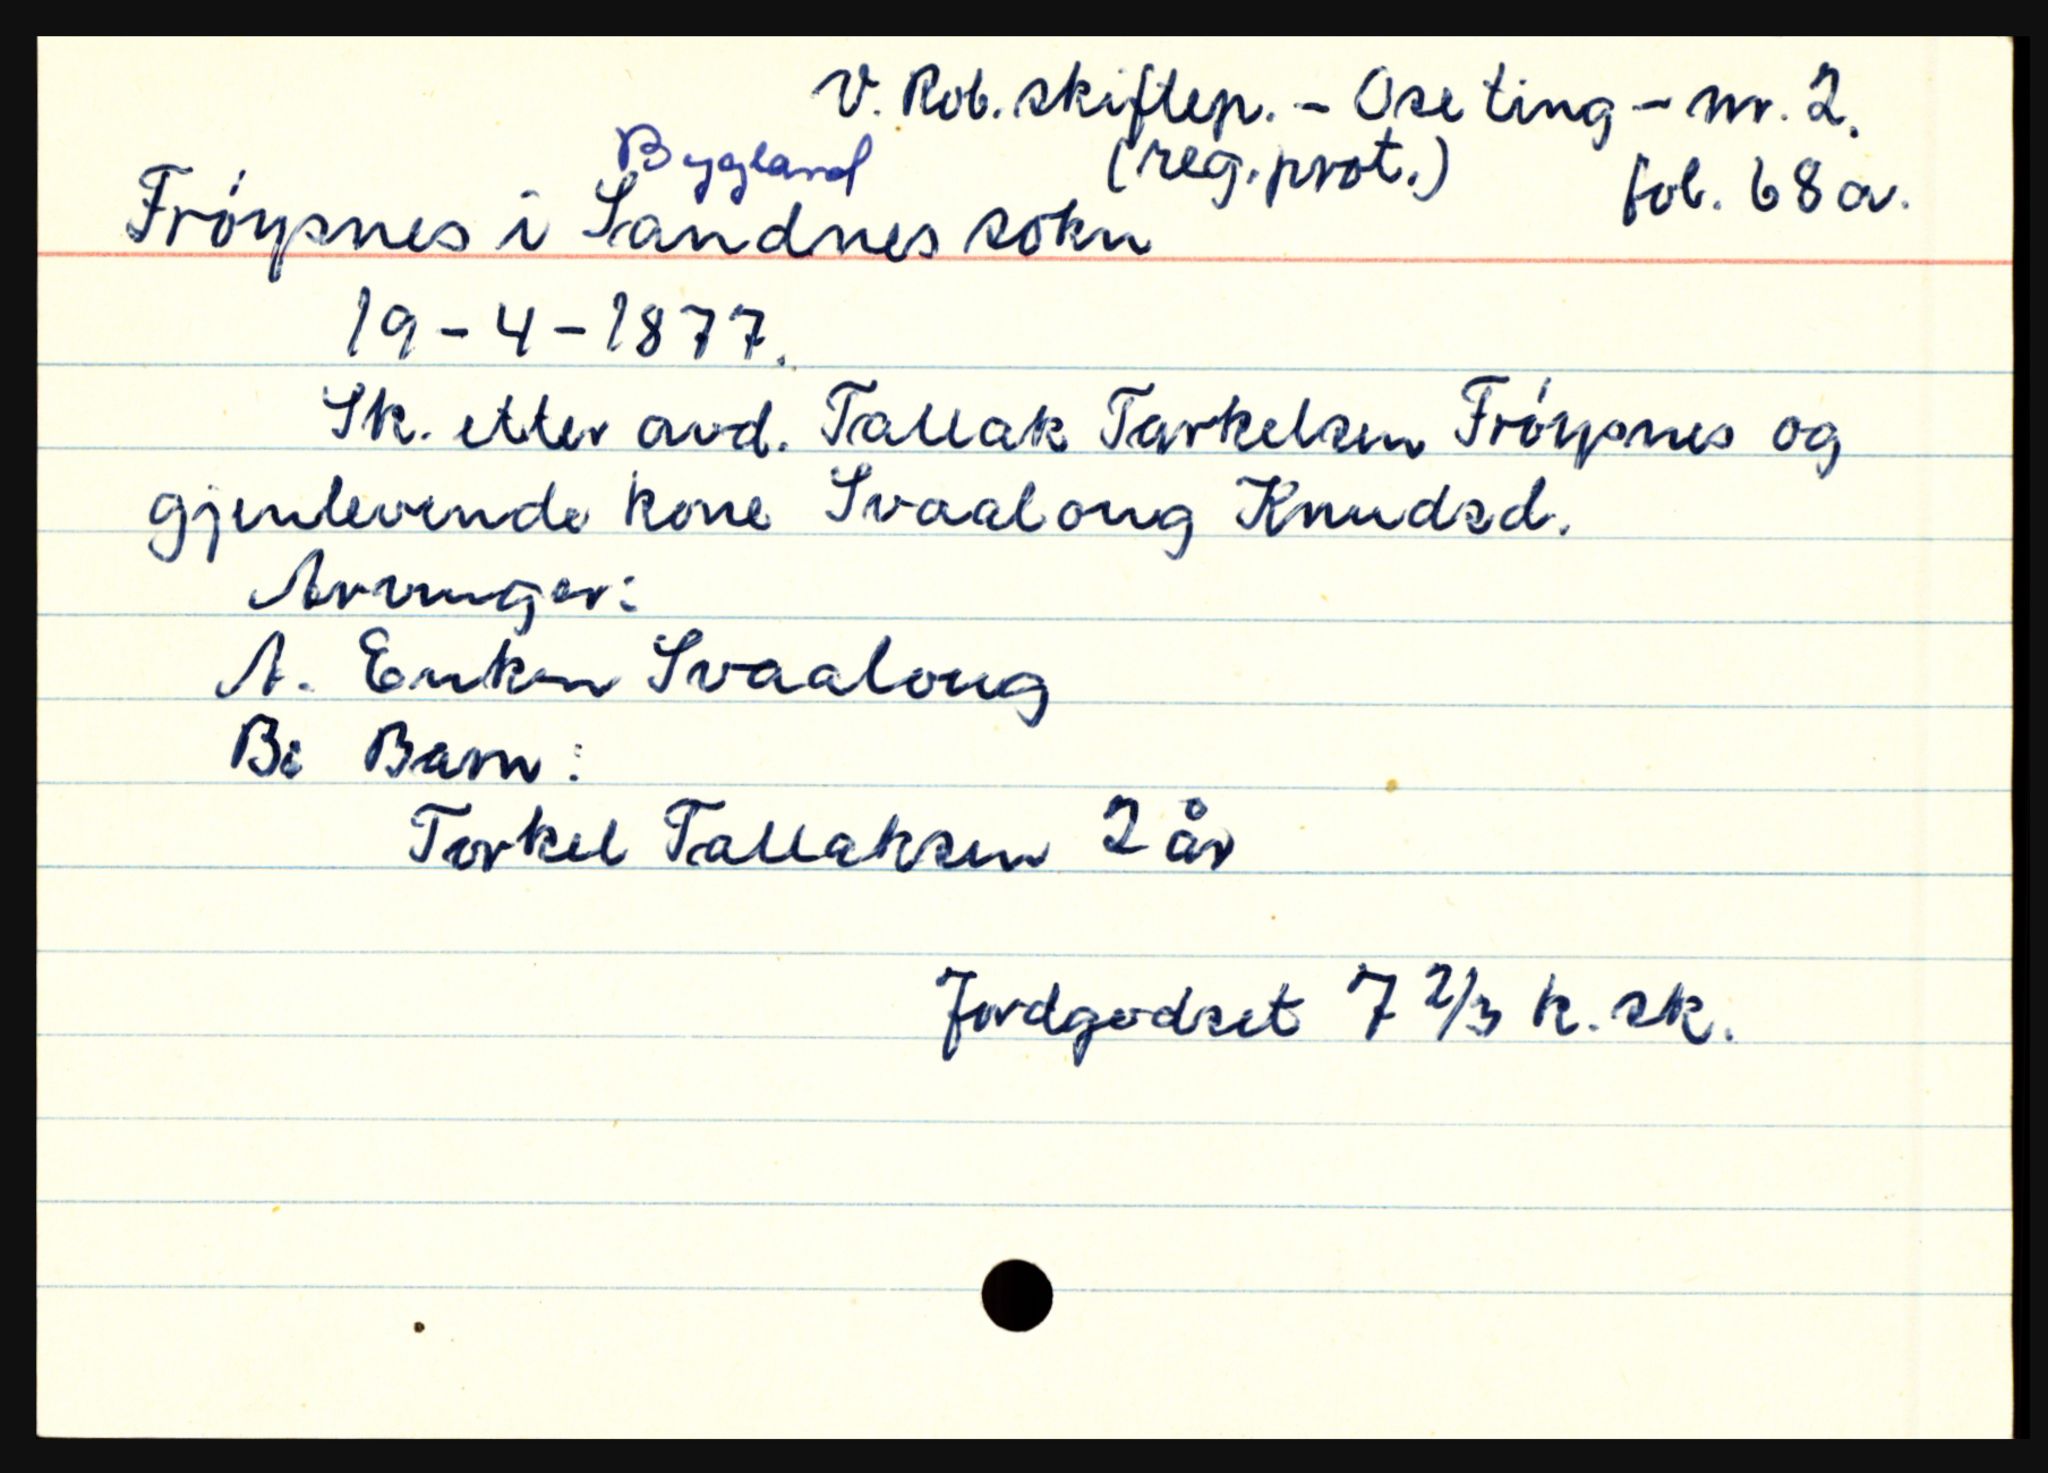 V. Rob. skiftep. - Ose ting - nr. 2.
Bygland (reg. prot.) fol. 68a.
Fróysnes i Sandnes sokn
19-4-1877.
Sk. etter avd. Tallak Tarkelsen Fróysnes og
gjenlevende kone Svaaloug Knudsd.
Arvinger:
A. Enken Svaaloug
B: Barn:
Torkel Tallaksen 2 år
Jordgodset 7 2/3 k. sk.